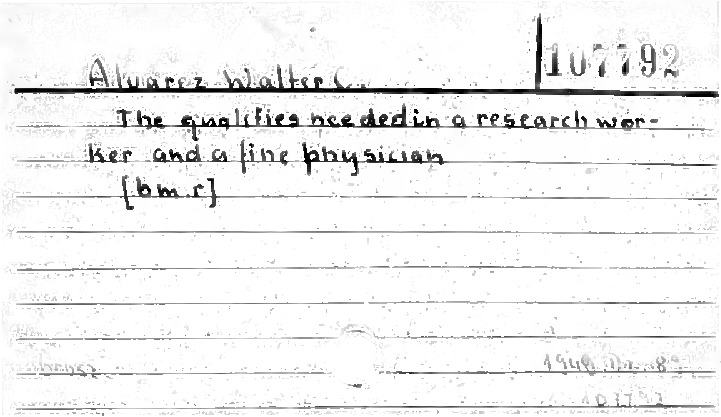 107792
Alvarez Walter C.
The qualities needed in a research wor-
ker and a fine physician
[b m. r]
107792